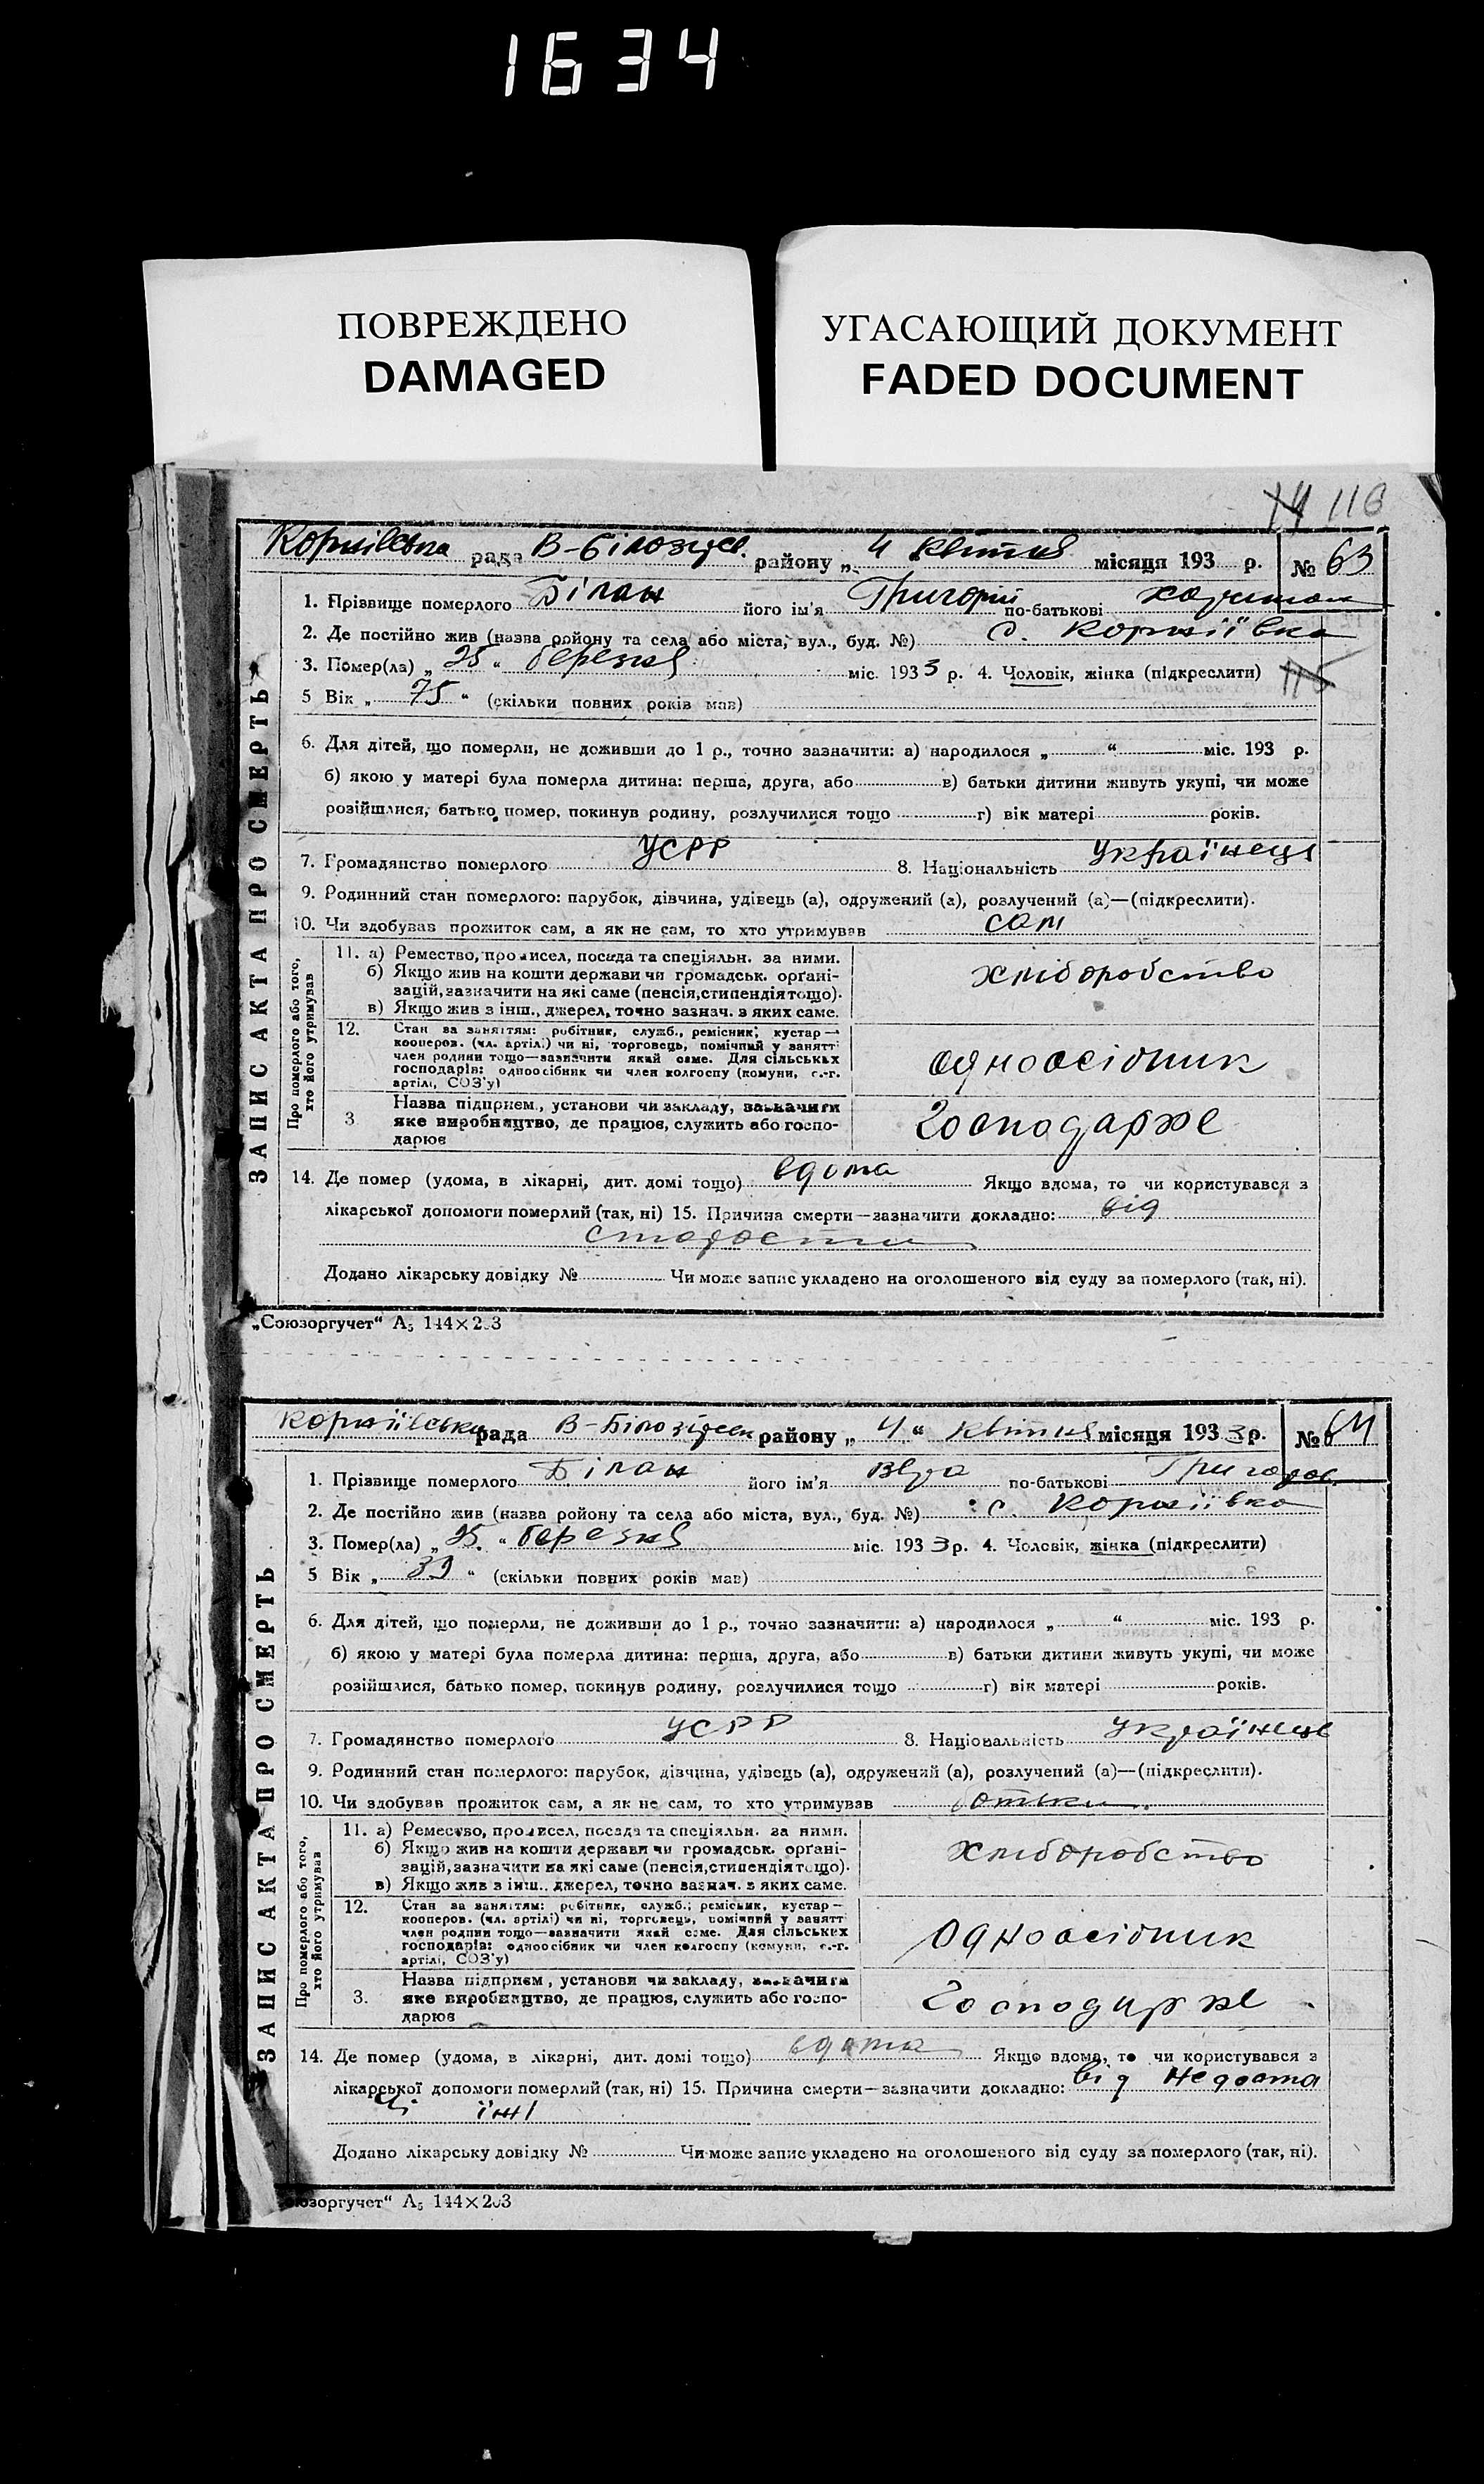 1634
ПОВРЕЖДЕНО
DAMAGED
УГАСАЮЩИЙ ДОКУМЕНТ
FADED DOCUMENT
116
рада В-Білозірс. району „ 4 квітня місяця 193 р. № 63
1. Прізвище померлого Білан його ім'я Григорій по-батькові
2. Де постійно жив (назва ройону та села або міста, вул., буд. №) с. Корніївка
3. Помер(ла) „ 25 “ березня міс. 1933 р. 4. Чоловік, жінка (підкреслити)
5 Вік „ 75 “ (скільки повних років мав)
6. Для дітей, що померли, не доживши до 1 р., точно зазначити: а) народилося „ “ міс. 193 р.
б) якою у матері була померла дитина: перша, друга, або в) батьки дитини живуть укупі, чи може
розійшлися, батько помер, покинув родину, розлучилися тощо г) вік матері років.
7. Громадянство померлого УСРР 8. Національність Українець
9. Родинний стан померлого: парубок, дівчина, удівець (а), одружений (а), розлучений (а)—(підкреслити).
10. Чи здобував прожиток сам, а як не сам, то хто утримував сам
ЗАПИС АКТА ПРО СМЕРТЬ
Про померлого або того,
хто його утримував
11. а) Ремество, промисел, посада та спеціяльн. за ними.
б) Якщо жив на кошти держави чи громадськ. орґані-
зацій, зазначити на які саме (пенсія, стипендія тощо).
в) Якщо жив з інш., джерел, точно зазнач. з яких саме.
хліборобство
12. Стан за заняттям: робітник, служб., ремісник, кустар—
кооперов. (чл. артілі) чи ні, торговець, помічний у занятті
член родини тощо—зазначити який саме. Для сільських
господарів: одноосібник чи член колгоспу (комуни, с.-г.
артілі, СОЗ'у)
одноосібник
3 Назва підприєм., установи чи закладу, зазначити
яке виробництво, де працює, служить або госпо-
дарює
господарже
14. Де помер (удома, в лікарні, дит. домі тощо) вдома Якщо вдома, то чи користувався з
лікарської допомоги померлий (так, ні) 15. Причина смерти—зазначити докладно: від
старости
Додано лікарську довідку № Чи може запис укладено на оголошеного від суду за померлого (так, ні).
„Союзоргучет“ А5 144×203
Корніївська рада В-Білозірськ району „ 4 “ квітня місяця 1933 р. № 64
1. Прізвище померлого Білан його ім'я Вера по-батькові Григоров.
2. Де постійно жив (назва ройону та села або міста, вул., буд. №) с. Корніївка
3. Помер(ла) „ 25. “ березня міс. 1933 р. 4. Чоловік, жінка (підкреслити)
5 Вік „ 39 “ (скільки повних років мав)
6. Для дітей, що померли, не доживши до 1 р., точно зазначити: а) народилося „ “ міс. 193 р.
б) якою у матері була померла дитина: перша, друга, або в) батьки дитини живуть укупі, чи може
розійшлися, батько помер, покинув родину, розлучилися тощо г) вік матері років.
7. Громадянство померлого УСРР 8. Національність Українець
9. Родинний стан померлого: парубок, дівчина, удівець (а), одружений (а), розлучений (а)—(підкреслити).
10. Чи здобував прожиток сам, а як не сам, то хто утримував
ЗАПИС АКТА ПРО СМЕРТЬ
Про померлого або того,
хто його утримував
11. а) Ремество, промисел, посада та спеціяльн. за ними.
б) Якщо жив на кошти держави чи громадськ. орґані-
зацій, зазначити на які саме (пенсія, стипендія тощо).
в) Якщо жив з інш., джерел, точно зазнач. з яких саме.
хліборобство
12. Стан за заняттям: робітник, служб., ремісник, кустар—
кооперов. (чл. артілі) чи ні, торговець, помічний у занятті
член родини тощо—зазначити який саме. Для сільських
господарів: одноосібник чи член колгоспу (комуни, с.-г.
артілі, СОЗ'у)
Одноосібник
3. Назва підприєм., установи чи закладу, зазначити
яке виробництво, де працює, служить або госпо-
дарює
Господарже
14. Де помер (удома, в лікарні, дит. домі тощо) вдома Якщо вдома, то чи користувався з
лікарської допомоги померлий (так, ні) 15. Причина смерти—зазначити докладно: від недоста
чі їжі
Додано лікарську довідку № Чи може запис укладено на оголошеного від суду за померлого (так, ні).
оюзоргучет“ А5 144×203